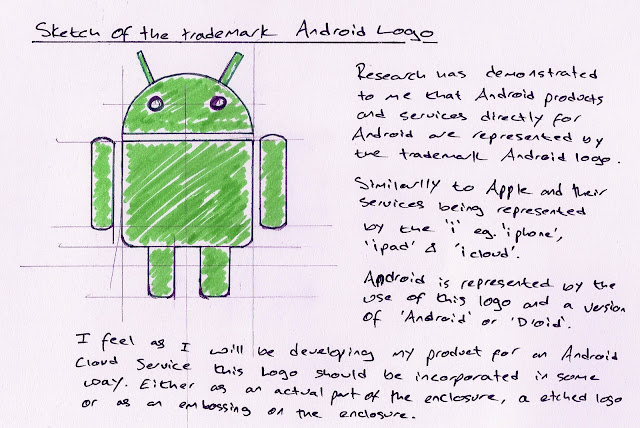 Sketch of the trademark Android Logo
Research has demonstrated
to me that Android products
and services directly for
Android are represented by
the trademark Android logo.
Similarlly to Apple and their
services being represented
by the 'i' eg. 'iphone',
'ipad' & 'icloud'.
Android is represented by the
use of this logo and a version
of 'Android' or 'Droid'.
I feel as I will be developing my product for an Android
Cloud Service this Logo should be incorporated in some
way. Either as an actual part of the enclosure, a etched logo
or as an embossing on the enclosure.